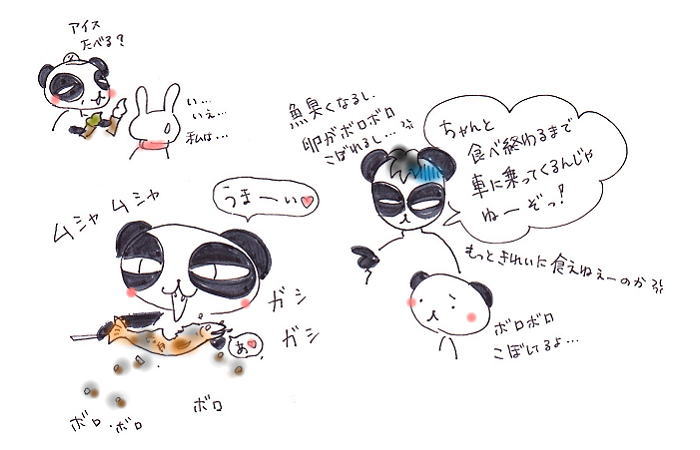 アイス
たべる?
い…
いえ…
私は…
ムシャ ムシャ
うまーい♡
ガシ
ガシ
あ♡
ボロ
・ボロ
ボロ
魚臭くなるし、
卵がボロボロ
こぼれるし…
ちゃんと
食べ終わるまで
車に乗ってくるんじゃ
ねーぞっ!
もっときれいに食えねぇーのか
ボロボロ
こぼしてるよ…